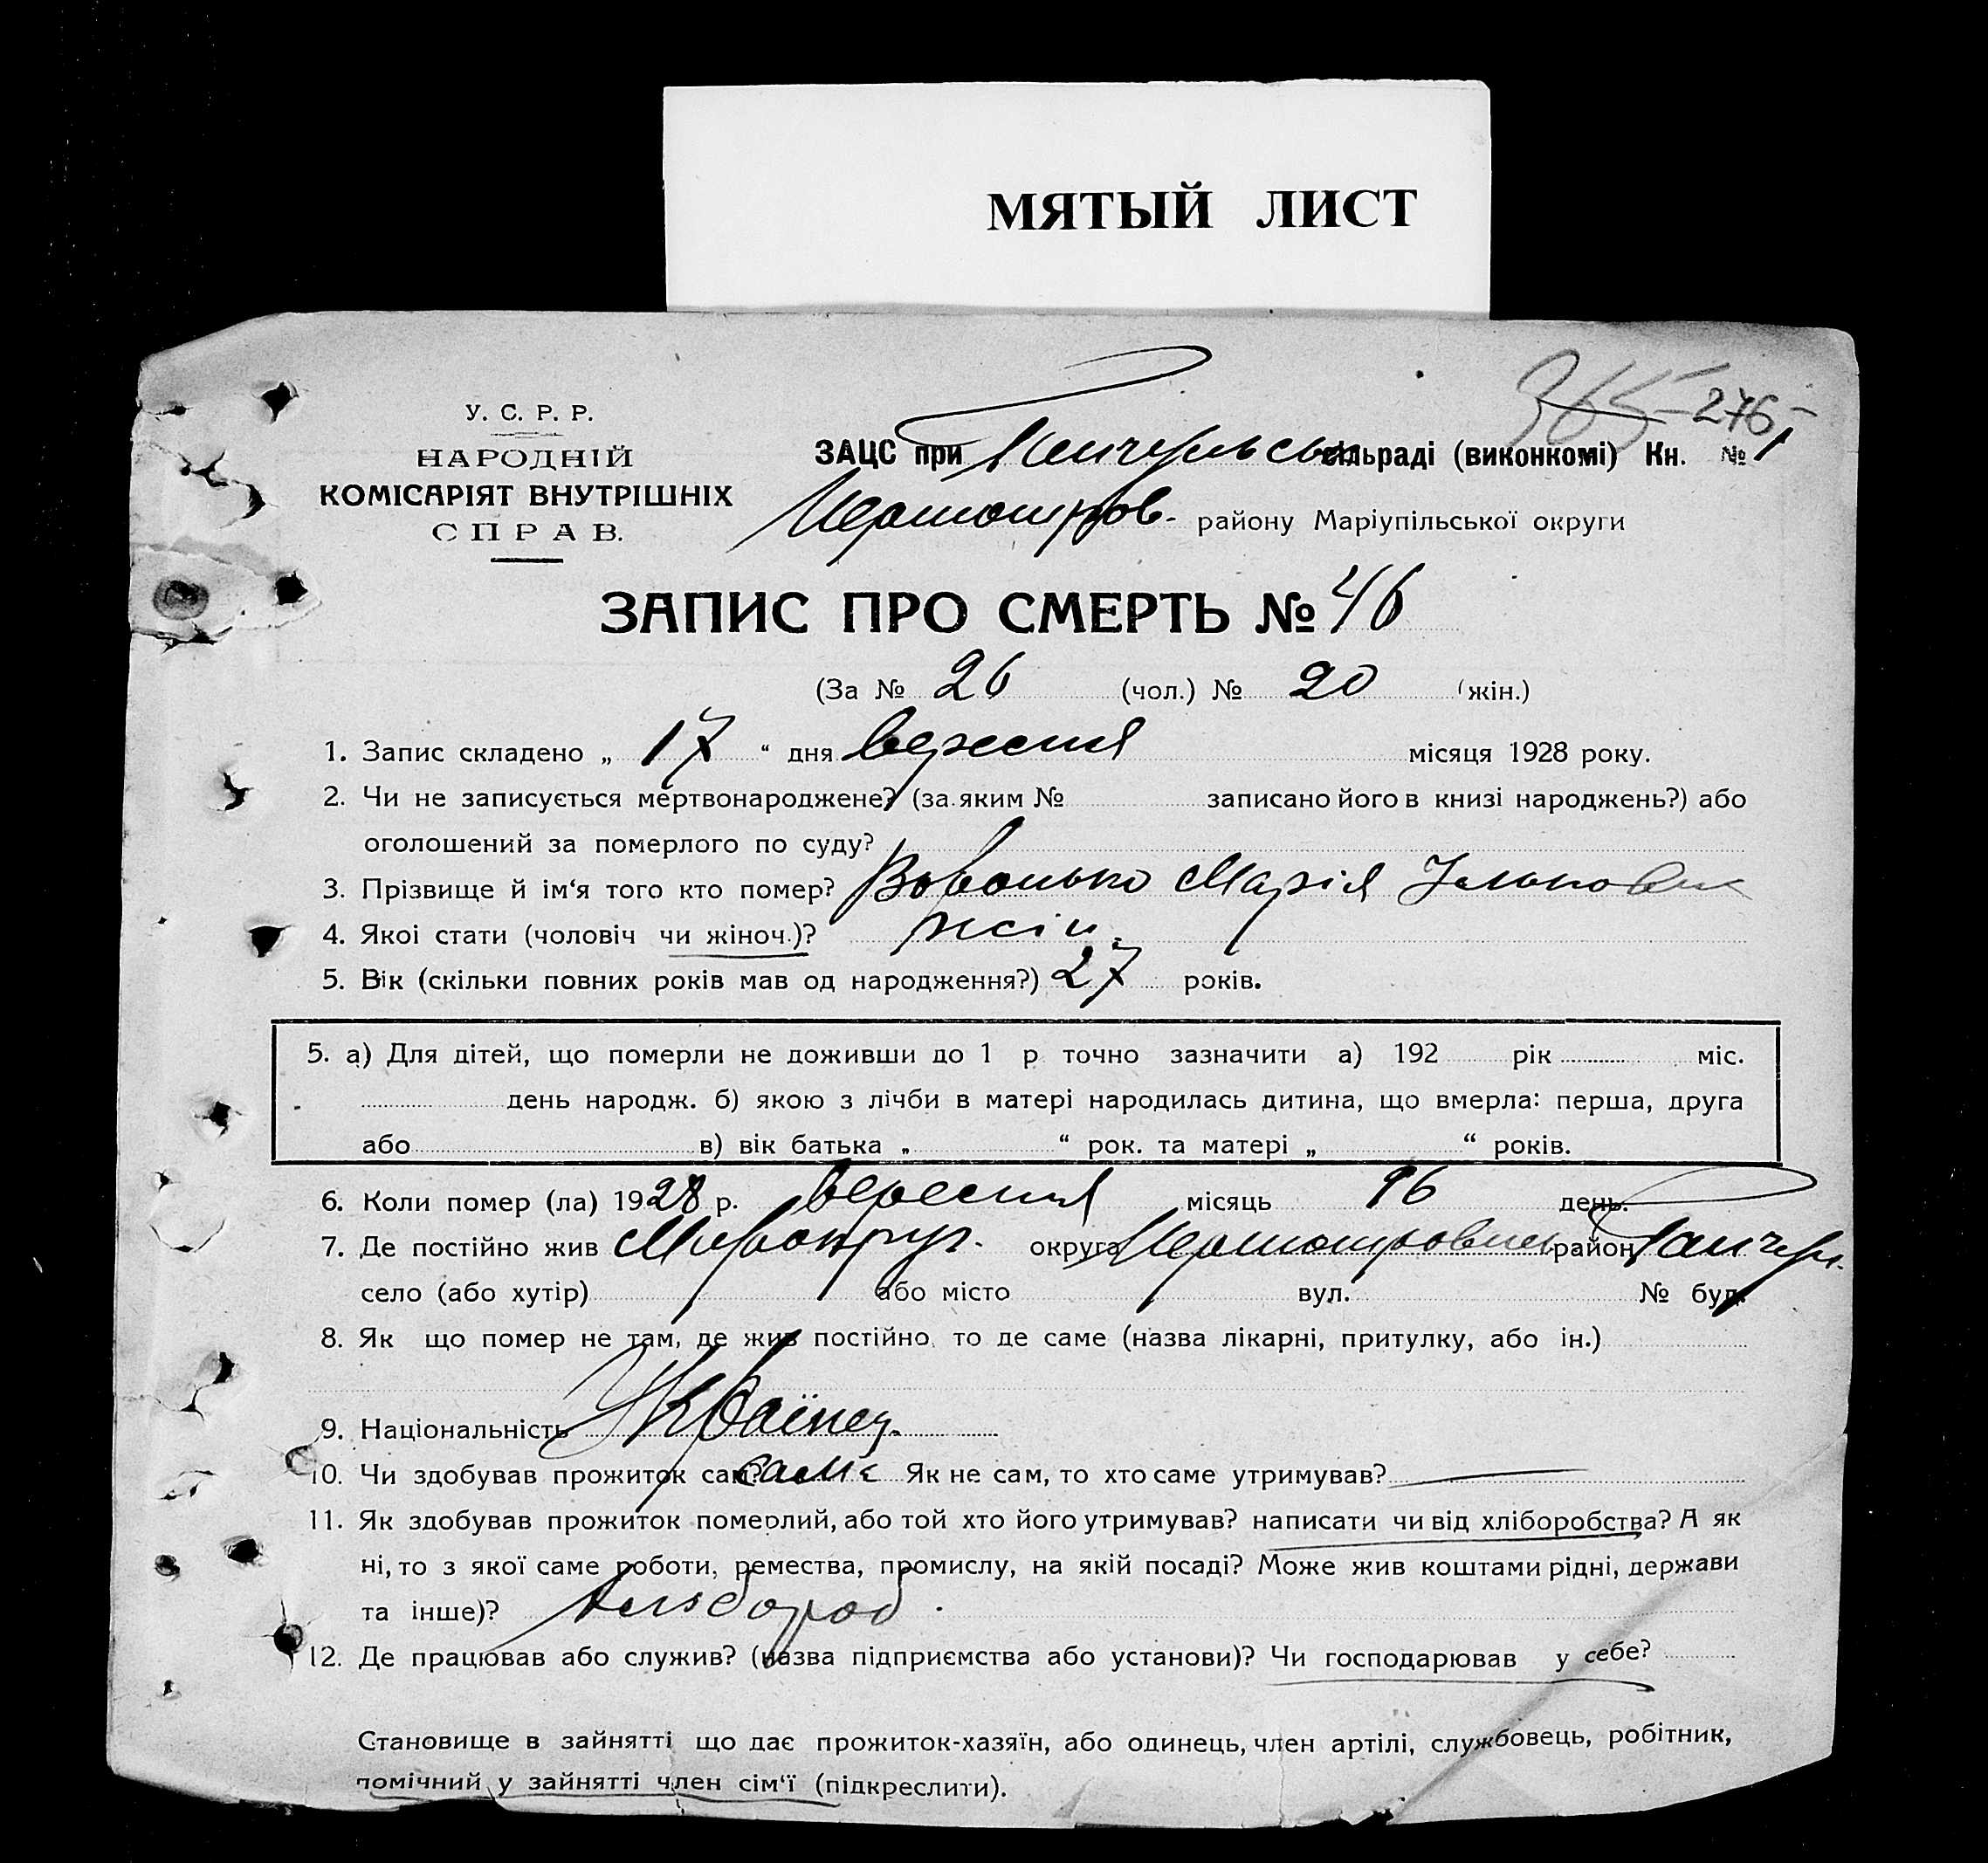 МЯТЫЙ ЛИСТ
276
У. С. Р. Р.
НАРОДНІЙ
КОМІСАРІЯТ ВНУТРІШНІХ
СПРАВ.
ЗАЦС при сільраді (виконкомі) Кн. № 1
району Маріупільської округи
ЗАПИС ПРО СМЕРТЬ № 46
(За № 26 (чол.) № 20 (жін.)
1. Запис складено „ 17 “ дня вересня місяця 1928 року.
2. Чи не записується мертвонароджене? (за яким № записано його в книзі народжень?) або
оголошений за померлого по суду?
3. Прізвище й ім‘я того кто помер? Марія
4. Якоі стати (чоловіч чи жіноч.)? жін.
5. Вік (скільки повних років мав од народження?) 27 років.
5. а) Для дітей, що померли не доживши до 1 р точно зазначити а) 192 рік міс.
день народж. б) якою з лічби в матері народилась дитина, що вмерла: перша, друга
або в) вік батька „ “ рок. та матері „ “ років.
6. Коли помер (ла) 1928 р. вересня місяць 16 день.
7. Де постійно жив округа район
село (або хутір) або місто вул. № буд.
8. Як що помер не там, де жив постійно, то де саме (назва лікарні, притулку, або ін.)
9. Національність Українец.
10. Чи здобував прожиток сам? сама Як не сам, то хто саме утримував? —
11. Як здобував прожиток померлий, або той хто його утримував? написати чи від хліборобства? А як
ні, то з якої саме роботи, ремества, промислу, на якій посаді? Може жив коштами рідні, держави
та інше)? хлібороб.
12. Де працював або служив? (назва підприємства або установи)? Чи господарював у себе?
Становище в зайнятті що дає прожиток-хазяїн, або одинець, член артілі, службовець, робітник,
помічний у зайнятті член сім‘ї (підкреслити).